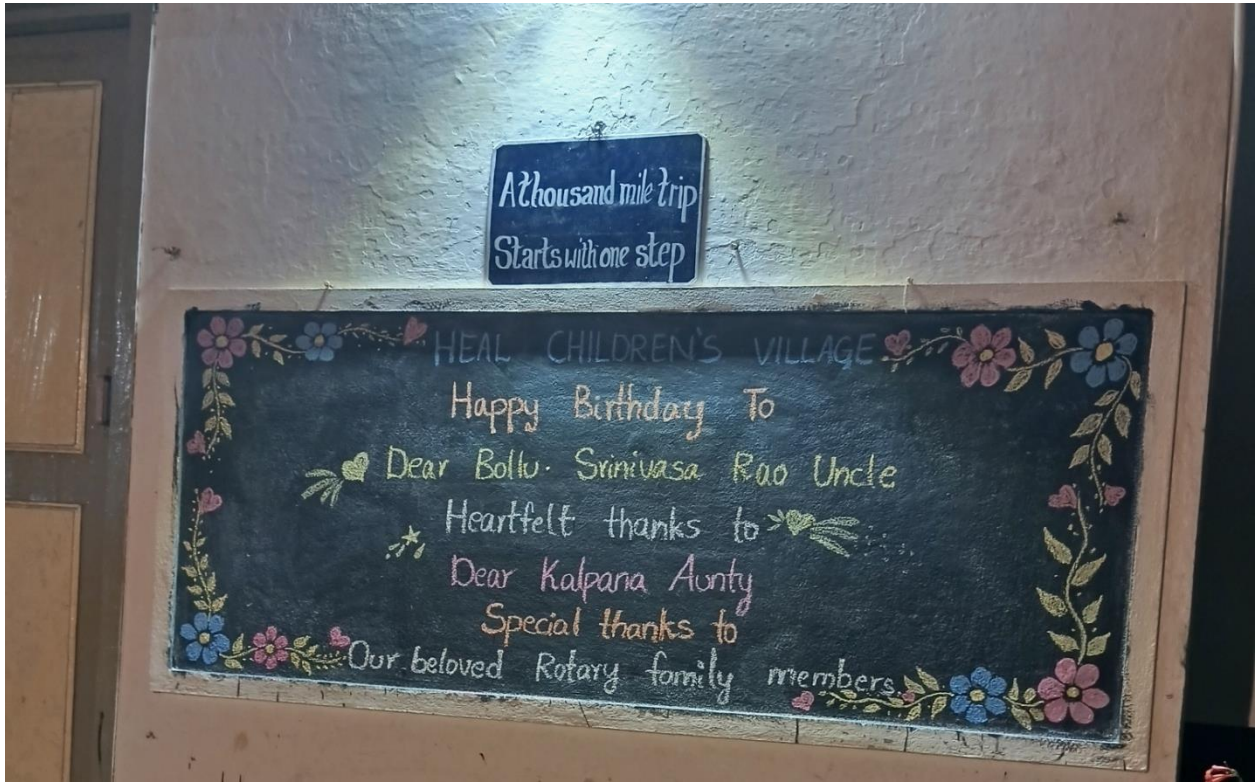 A thousand mile trip
Starts with one step
HEAL CHILDREN'S VILLAGE
Happy Birthday To
Dear Bollu. Srinivasa Rao Uncle
Heartfelt thanks to
Dear Kalpana Aunty
Special thanks to
Our beloved Rotary family members.